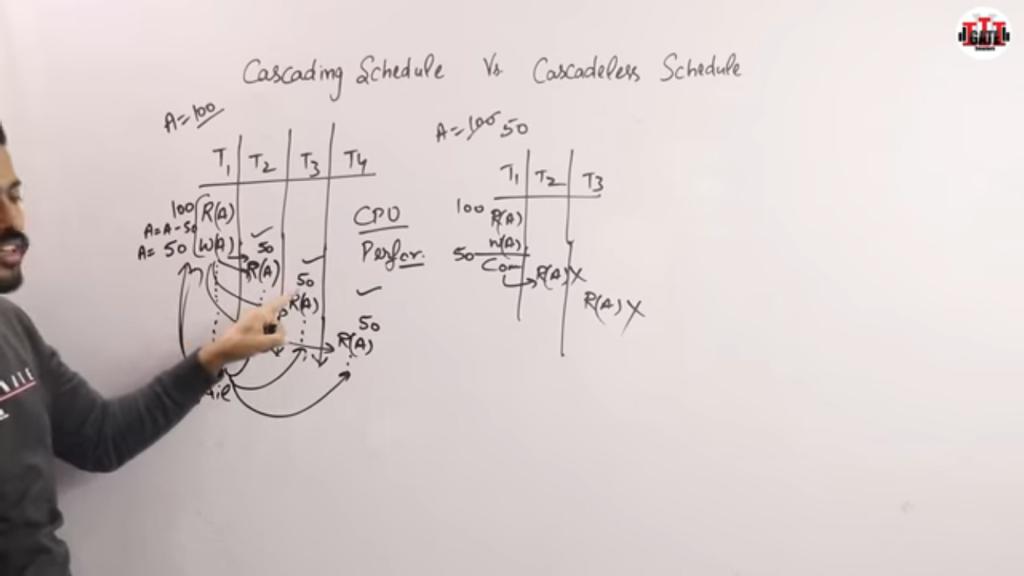 Cascading Schedule Vs Cascadeless Schedule
A=100
T1 T2 T3 T4
100 R(A)
A=A-50
A=50 W(A)
50
R(A)
50
R(A)
50
R(A)
CPU
Perfor.
A=100 50
T1 T2 T3
100
R(A)
W(A)
50
Com
R(A) X
R(A) X
GATE